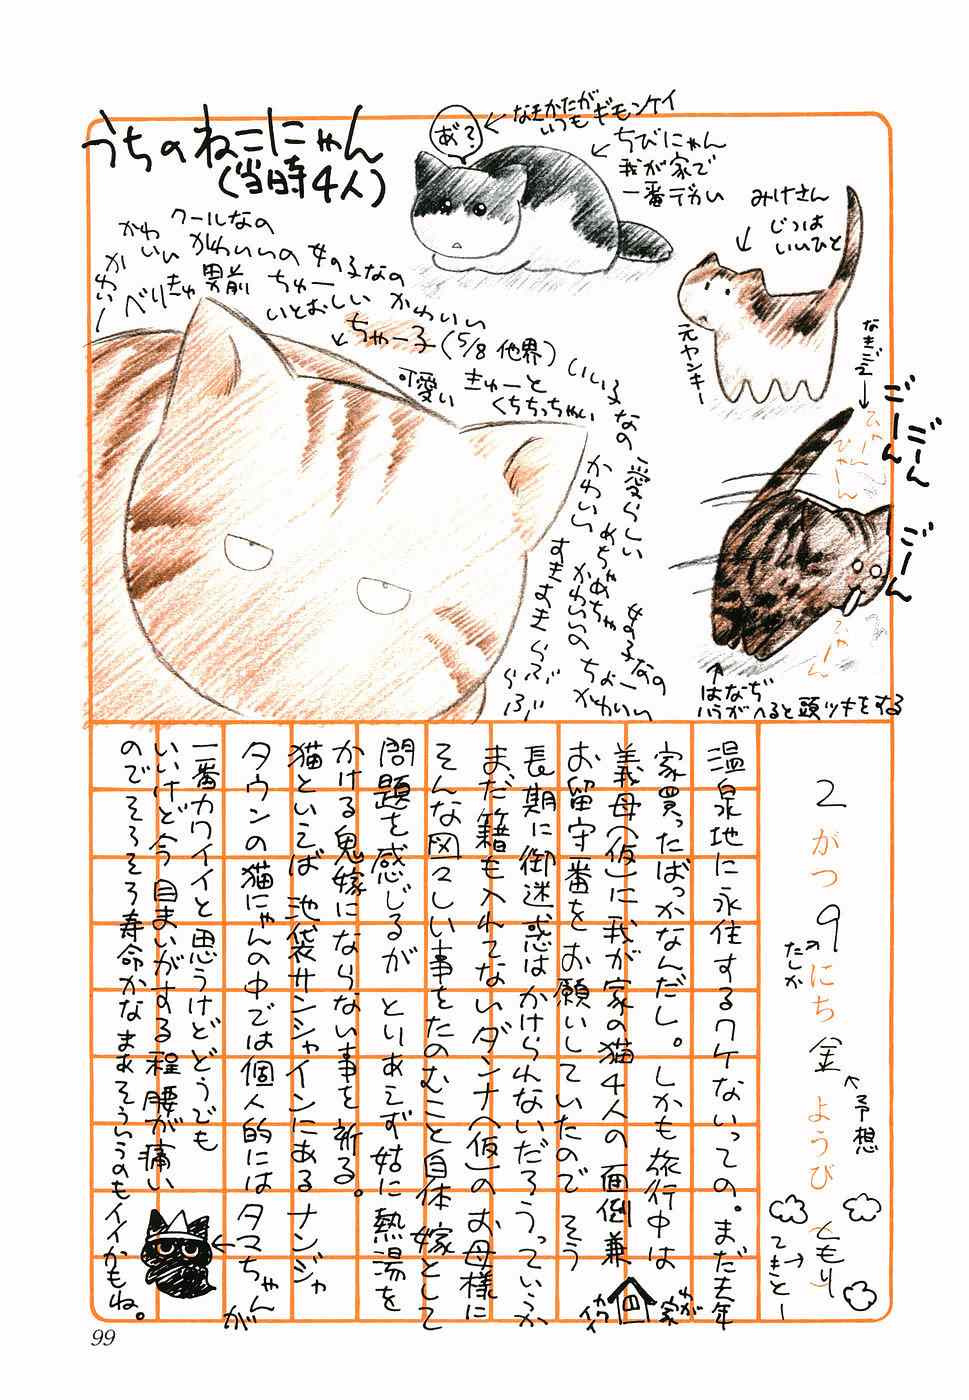 うちのねこにゃん
(当時4人)
あ゛?
なきかたが
いつもギモンケイ
ちびにゃん
我が家で
一番デカい
みけさん
じつは
いいひと
元ヤンキー
なきごえ
ごーん
ごーん
ごーん
ひゃーん
ひゃーん
ひゃーん
はなぢ
ハラがへると頭ツキをする
クールなの
かわいいの
女の子なの
かわいい
かわいー
べりきゅ
男前
ちゅー
いとおしい
かわいい
ちゃー子(5/8 他界)
可愛い
きゅーと
くちちっちゃい
いい子なの
愛らしい
かわいい
めちゃめちゃ
かわいいの
すきすきすきらぶ
らぶ
女の子なの
ちょー
かわいい
2がつ9にち金ようび
のたしか
予想
ともり
てきとー
温泉地に永住するワケないっての。まだ去年
家買ったばっかなんだし。しかも旅行中は
義母(仮)に我が家の猫4人の面倒兼
お留守番をお願いしていたのでそう
長期に御迷惑はかけらんないだろうっていうか
まだ籍も入れてないダンナ(仮)のお母様に
そんな図々しい事をたのむこと自体嫁として
問題を感じるが とりあえず姑に熱湯を
かける鬼嫁にならない事を祈る。
猫といえば池袋サンシャインにあるナンジャ
タウンの猫にゃんの中では個人的にはタマちゃん
が
一番カワイイと思うけどどうでも
いいけど今目まいがする程腰が痛い
のでそろそろ寿命かなまあそういうのもイイかもね。
わが
家
カワイイ
99